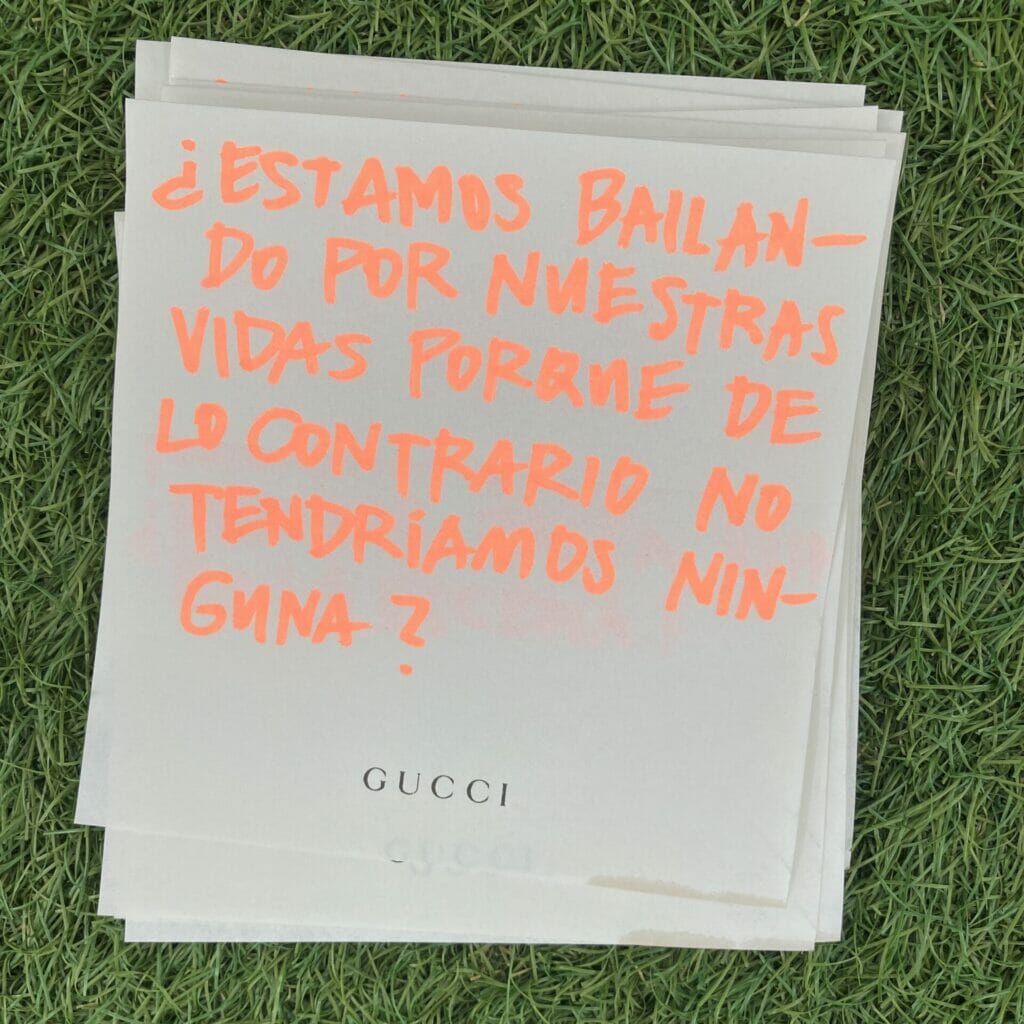 ¿ESTAMOS BAILAN-
DO POR NUESTRAS
VIDAS PORQUE DE
LO CONTRARIO NO
TENDRÍAMOS NIN-
GUNA?
GUCCI
GUCCI